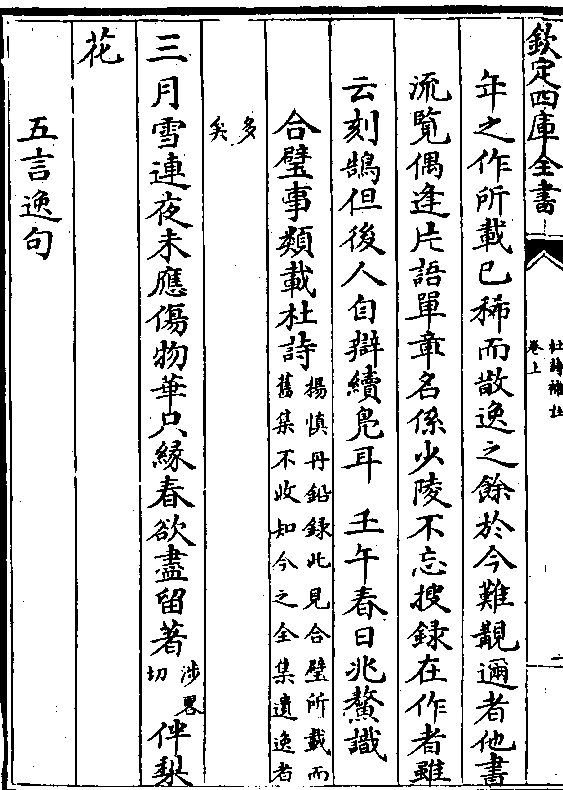 欽定四庫全書
杜詩補註
卷上
二
年之作所載已稀而散逸之餘於今難覩邇者他書
流覽偶逢片語單章名係少陵不忘搜録在作者雖
云刻鵠但後人自辯續鳬耳　壬午春日兆鰲識
合璧事類載杜詩楊慎丹鉛録此見合璧所載而
舊集不收知今之全集遺逸者
多
矣
三月雪連夜未應傷物華只緣春欲盡留著涉畧
切伴梨
花
五言逸句